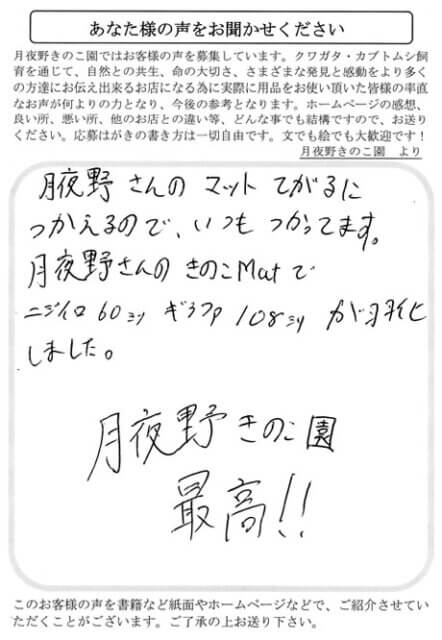 あなた様の声をお聞かせください
月夜野きのこ園ではお客様の声を募集しています。クワガタ・カブトムシ飼
育を通じて、自然との共生、命の大切さ、さまざまな発見と感動をより多く
の方達にお伝え出来るお店になる為に実際に用品をお使い頂いた皆様の率直
なお声が何よりの力となり、今後の参考となります。ホームページの感想、
良い所、悪い所、他のお店との違い等、どんな事でも結構ですので、お送り
ください。応募はがきの書き方は一切自由です。文でも絵でも大歓迎です！
月夜野きのこ園　より
月夜野さんの マット てがるに
つかえるので、いつも つかってます。
月夜野さんの きのこMatで
ニジイロ 60ミリ ギラファ 108ミリ が羽化
しました。
月夜野きのこ園
最高!!
このお客様の声を書籍など紙面やホームページなどで、ご紹介させてい
ただくことがございます。ご了承の上お送り下さい。